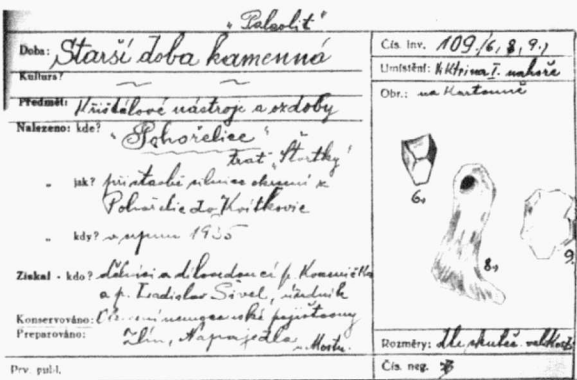 „Paleolit"
Doba: Starší doba kamenná
Kultura?
Předmět: Křišťálové nástroje a ozdoby
Nalezeno: kde? „Pohořelice"
trať „Štortky"
„ jak? při stavbě silnice okresní z
Pohořelic do Kvítkovic
„ kdy? v srpnu 1935
Získal - kdo? dělníci a dílovedoucí p.
a p. Ladislav Sível, úředník
Konservováno: nemocenské pojišťovny
Preparováno: Zlín, Napajedla
Prv. publ.
Čís. inv. 109./6, 8, 9.)
Umístění: Vitrina I. nahoře
Obr.: na kartonně
6.
8.
9.
Rozměry: dle skuteč. velikosti
Čís. neg.